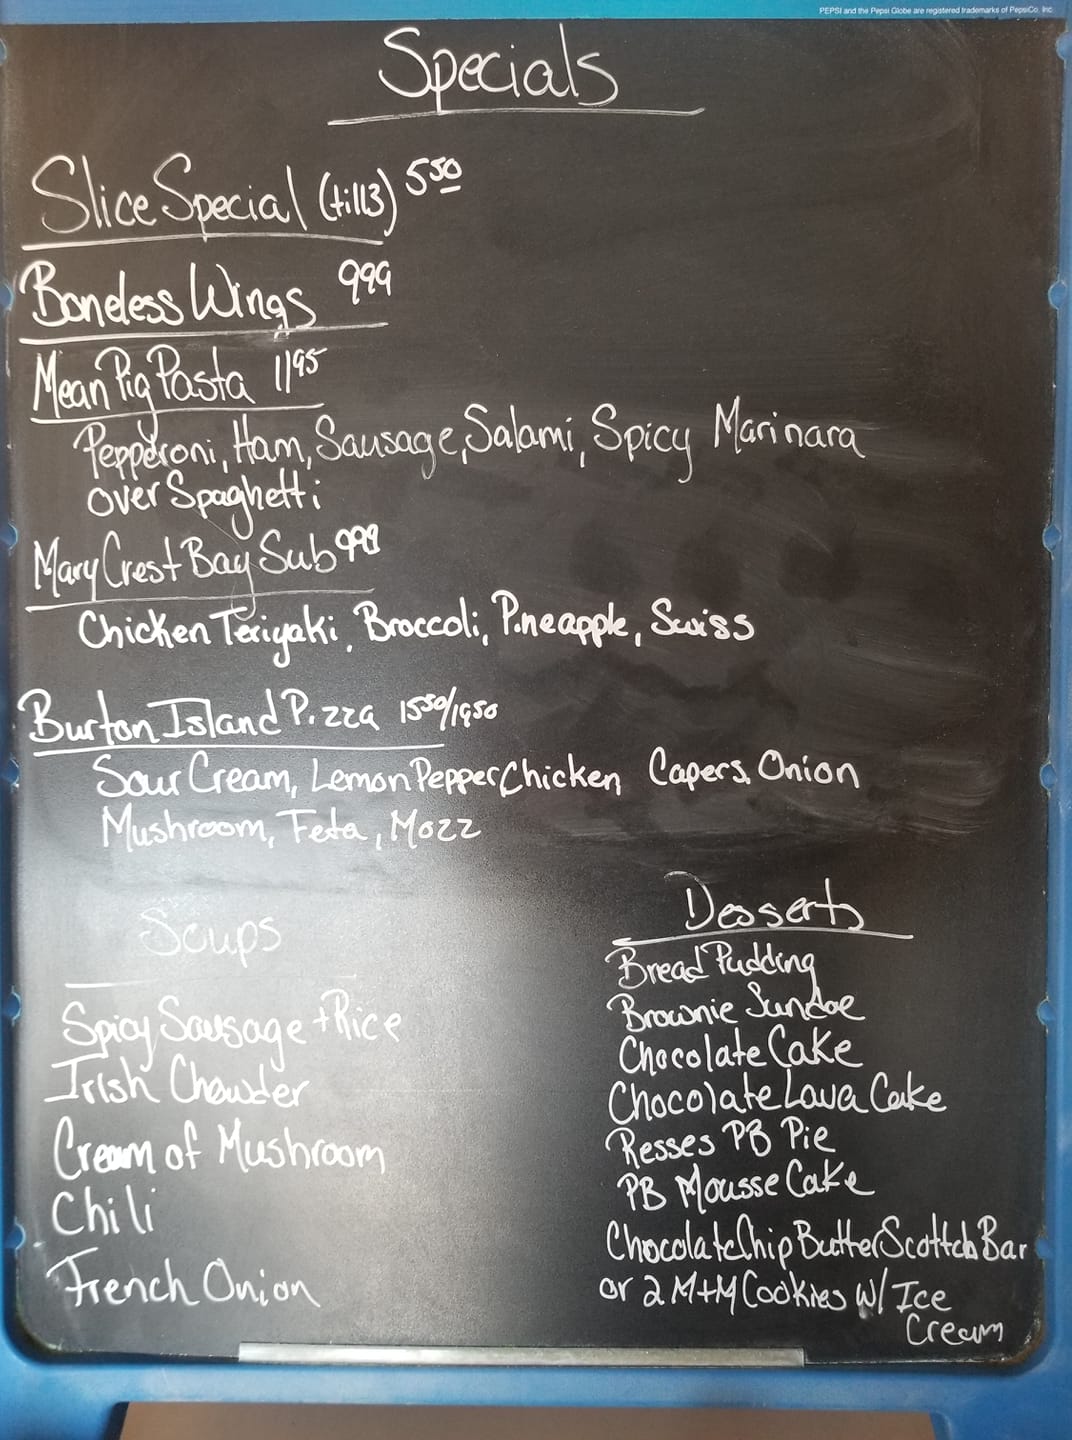 PEPSI and the Pepsi Globe are registered trademarks of PepsiCo, Inc
Specials
Slice Special (till3) 550
Boneless Wings 999
Mean Pig Pasta 1195
Pepperoni, Ham, Sausage, Salami, Spicy Marinara
over Spaghetti
Mary Crest Bay Sub 999
Chicken Teriyaki, Broccoli, Pineapple, Swiss
Burton Island Pizza 1550/1950
Sour Cream, Lemon Pepper Chicken, Capers, Onion
Mushroom, Feta, Mozz
Soups
Spicy Sausage + Rice
Irish Chowder
Cream of Mushroom
Chili
French Onion
Desserts
Bread Pudding
Brownie Sundae
Chocolate Cake
Chocolate Lava Cake
Resses PB Pie
PB Mousse Cake
Chocolate Chip ButterScottch Bar
or 2 M+M Cookies w/ Ice
Cream